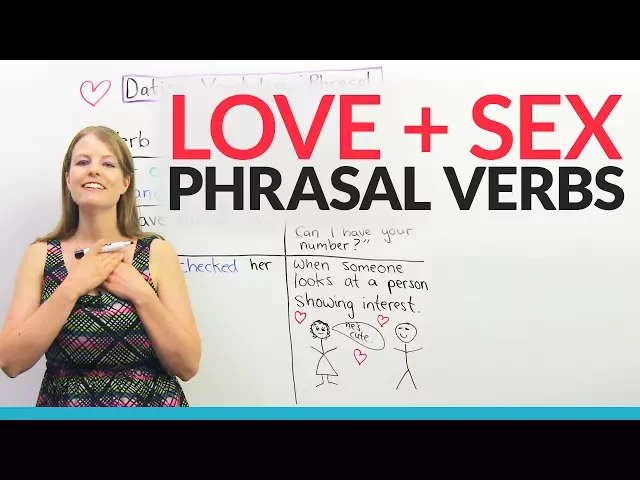 LOVE + SEX
PHRASAL VERBS
Can I have your
number?"
checked her
when someone
looks at a person
showing interest.
he's
cute.